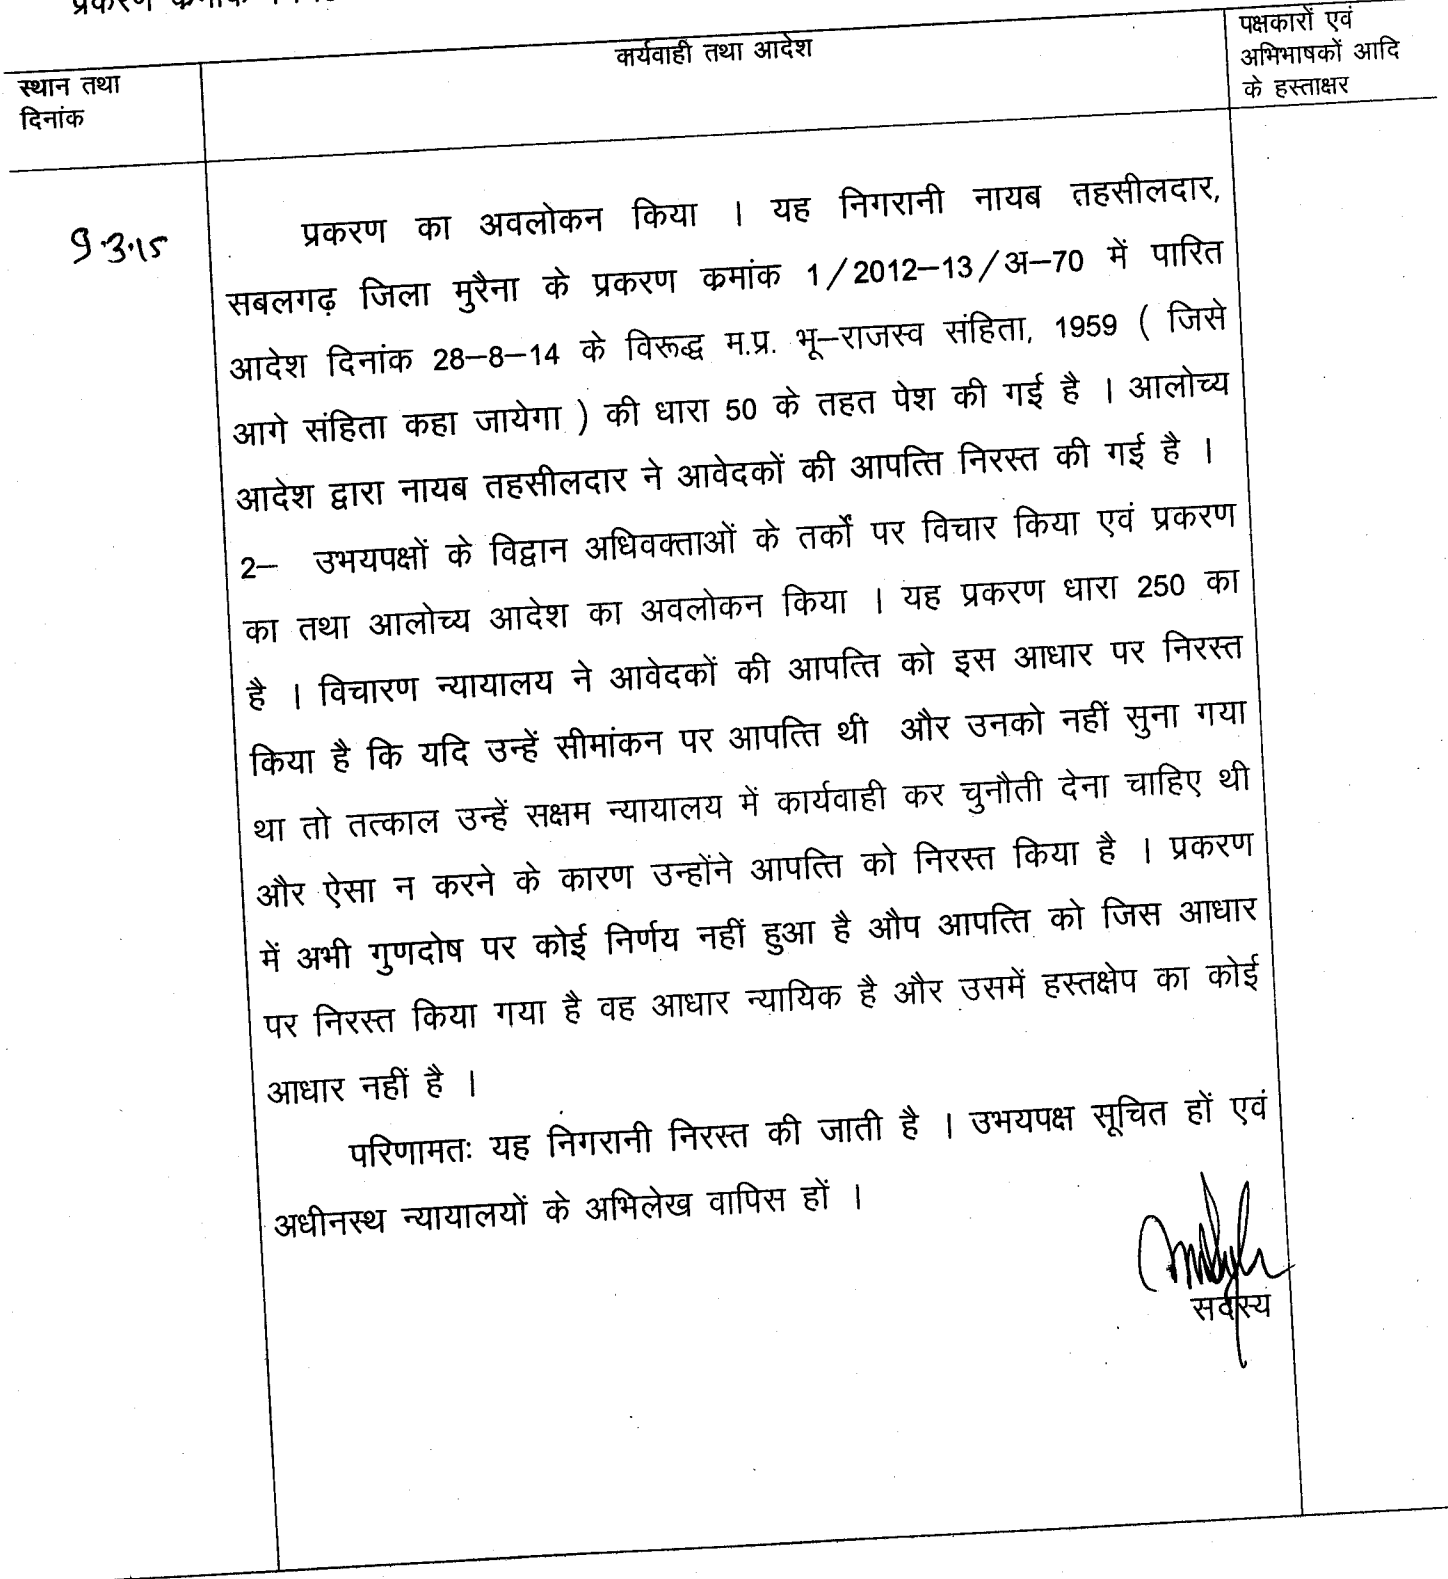 प्रकरण
कार्यवाही तथा आदेश
पक्षकारों एवं
अभिभाषकों आदि
के हस्ताक्षर
स्थान तथा
दिनांक
9.3.15
प्रकरण का अवलोकन किया । यह निगरानी नायब तहसीलदार,
सबलगढ़ जिला मुरैना के प्रकरण कमांक 1/2012–13/अ–70 में पारित
आदेश दिनांक 28–8–14 के विरूद्ध म.प्र. भू–राजस्व संहिता, 1959 ( जिसे
आगे संहिता कहा जायेगा ) की धारा 50 के तहत पेश की गई है । आलोच्य
आदेश द्वारा नायब तहसीलदार ने आवेदकों की आपत्ति निरस्त की गई है ।
2– उभयपक्षों के विद्वान अधिवक्ताओं के तर्कों पर विचार किया एवं प्रकरण
का तथा आलोच्य आदेश का अवलोकन किया । यह प्रकरण धारा 250 का
है । विचारण न्यायालय ने आवेदकों की आपत्ति को इस आधार पर निरस्त
किया है कि यदि उन्हें सीमांकन पर आपत्ति थी और उनको नहीं सुना गया
था तो तत्काल उन्हें सक्षम न्यायालय में कार्यवाही कर चुनौती देना चाहिए थी
और ऐसा न करने के कारण उन्होंने आपत्ति को निरस्त किया है । प्रकरण
में अभी गुणदोष पर कोई निर्णय नहीं हुआ है औप आपत्ति को जिस आधार
पर निरस्त किया गया है वह आधार न्यायिक है और उसमें हस्तक्षेप का कोई
आधार नहीं है ।
परिणामतः यह निगरानी निरस्त की जाती है । उभयपक्ष सूचित हों एवं
अधीनस्थ न्यायालयों के अभिलेख वापिस हों ।
सदस्य